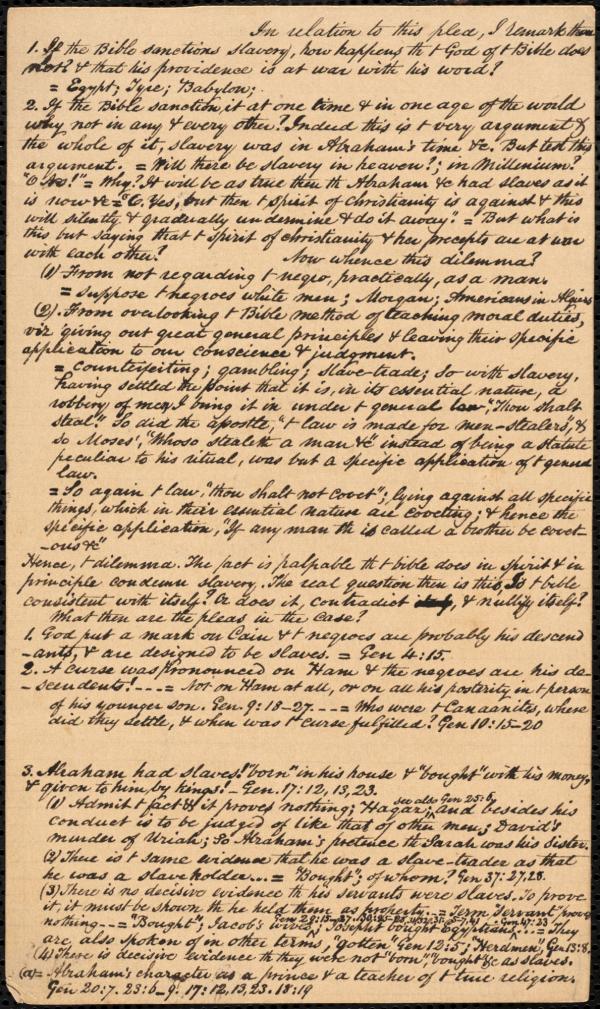 In relation to this plea, I remark then
1. If the Bible sanctions slavery, how happens th t God of t Bible does
not? & that his providence is at war with his word?
= Egypt; Tyre; Babylon;
2. If the Bible sanction it at one time & in one age of the world
why not in any & every other? Indeed this is t very argument &
the whole of it, slavery was in Abraham's time &c. But test this
argument. = Will there be slavery in heaven?; in Millenium?
"O No!" = Why? It will be as true then th Abraham &c had slaves as it
is now &c = "O. Yes, but then t spirit of Christianity is against & this
will silently & gradually undermine & do it away". = But what is
this but saying that t spirit of christianity & her precepts are at war
with each other? Now whence this dilemma?
(1) From not regarding t negro, practically, as a man.
= suppose t negroes white men; Morgan; Americans in Algiers
(2). From overlooking t Bible method of teaching moral duties,
viz giving out great general principles & leaving their specific
application to our conscience & judgment.
= counterfeiting; gambling; slave-trade; So with slavery,
having settled the point that it is, in its essential nature, a
robbery of men, I bring it in under t general law, "Thou shalt
steal." So did the apostle, "t law is made for men-stealers", &
so Moses', "Whoso stealeth a man &c" instead of being a statute
peculiar to his ritual, was but a specific application of t general
law.
= So again t law, "thou shalt not covet"; lying against all specific
things, which in their essential nature are coveting; & hence the
specific application, "If any man th is called a brother be covet-
-ous &c"
Hence, t dilemma. The fact is palpable th t bible does in spirit & in
principle condemn slavery. The real question then is this, Is t bible
consistent with itself? Or does it, contradict & nullify itself?
What then are the pleas in the case?
1. God put a mark on Cain & t negroes are probably his descend
-ants, & are designed to be slaves. = Gen 4:15.
2. A curse was pronounced on Ham & the negroes are his de-
- scendents! - - - = Not on Ham at all, or on all his posterity, in t person
of his younger son. Gen. 9:18-27. - - - = Who were t Canaanites, where
did they settle, & when was t curse fulfilled? Gen 10:15-20
3. Abraham had slaves! "born" in his house & "bought" with his money,
& given to him by kings! - Gen. 17:12, 13, 23.
see also Gen 25:6
(1) Admit t fact & it proves nothing; Hagar; and besides his
conduct is to be judged of like that of other men; David's
murder of Uriah; So Abraham's pretence th Sarah was his sister.
(2) There is t same evidence that he was a slave-trader as that
he was a slaveholder... = "Bought"; of whom? Gen 37:27,28.
(3) There is no decisive evidence th his servants were slaves. To prove
it, it must be shown th he held them as property - = Term servant proves
nothing - - = "Bought"; Jacob's wives; Joseph bought Egyptians - - = They
are, also spoken of in other terms, "gotten" Gen 12:5; "Herdmen", Gen 13:8.
(4) There is decisive evidence th they were not "born", "bought" &c as slaves.
(a) = Abraham's character as a prince & a teacher of t true religion.
Gen 20:7. 23:6-9. 17:12,13,23. 18:19